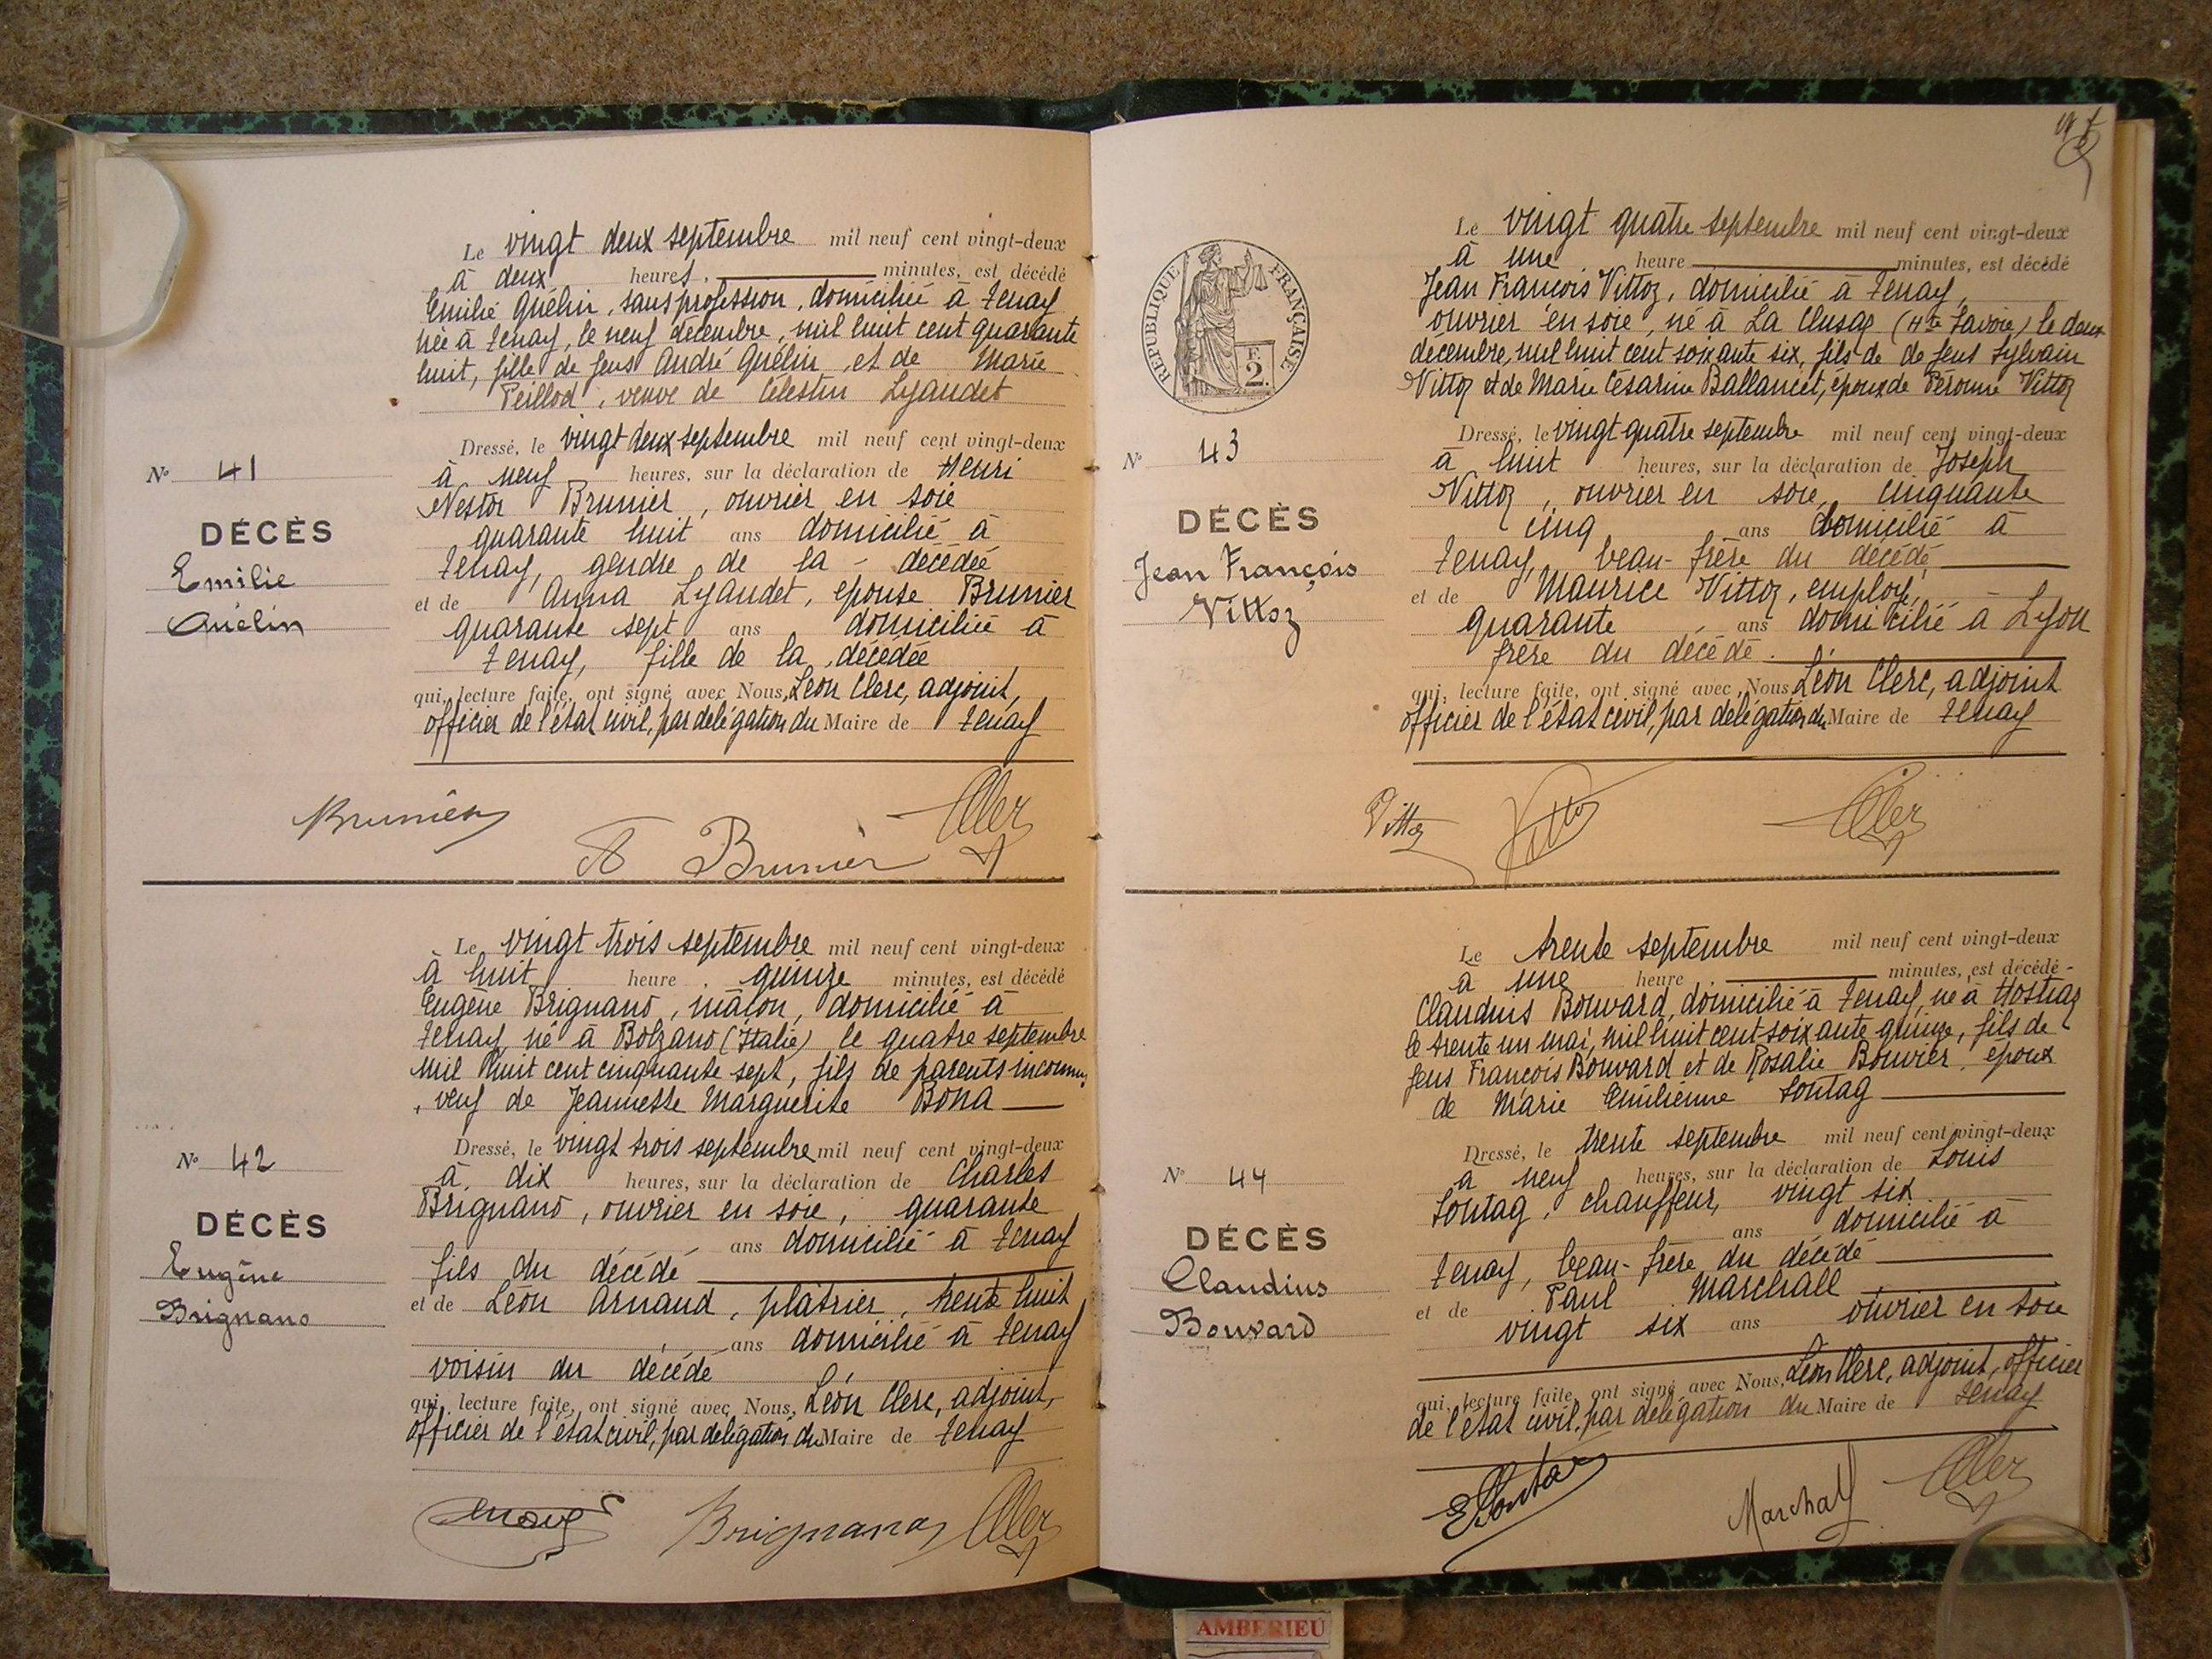 Le vingt deux septembre mil neuf cent vingt-deux
à deux heures, minutes, est décédé
Emilie Quélin, sans profession, domiciliée à Tenay
née à Tenay, le neuf décembre, mil huit cent quarante
huit, fille de feus André Quélin, et de Marie
Peillod, veuve de Célestin Lyaudet
Dressé, le vingt deux septembre mil neuf cent vingt-deux
à neuf heures, sur la déclaration de Henri
Nestor Brunier, ouvrier en soie
quarante huit ans domicilié à
Tenay, gendre de la décédée
et de Anna Lyaudet, épouse Brunier
quarante sept ans domiciliée à
Tenay, fille de la décédée
qui, lecture faite, ont signé avec Nous, Léon Clerc, adjoint,
officier de l'état civil, par délégation du Maire de Tenay
N° 41
DÉCÈS
Emilie
Quélin
Brunier
A Brunier
Clerc
Le vingt trois septembre mil neuf cent vingt-deux
à huit heure quinze minutes, est décédé
Eugène Brignano, mâçon, domicilié à
Tenay, né à Bolzano (Italie) le quatre septembre
mil huit cent cinquante sept, fils de parents inconnus,
, veuf de Jeannette Marguerite Bona
Dressé, le vingt trois septembre mil neuf cent vingt-deux
à dix heures, sur la déclaration de Charles
Brignano, ouvrier en soie, quarante
ans domicilié à Tenay
fils du décédé
et de Léon Arnaud, plâtrier, trente huit
ans domicilié à Tenay
voisin du décédé
qui, lecture faite, ont signé avec Nous, Léon Clerc, adjoint,
officier de l'état civil, par délégation du Maire de Tenay
N° 42
DÉCÈS
Eugène
Brignano
Brignano
Clerc
RÉPUBLIQUE FRANÇAISE
2 F.
Le vingt quatre septembre mil neuf cent vingt-deux
à une heure minutes, est décédé
Jean François Vittoz, domicilié à Tenay,
ouvrier en soie, né à La Clusaz (Hte Savoie) le deux
décembre, mil huit cent soixante six, fils de de feus Sylvain
Vittoz et de Marie Césarine Ballancet, époux de Péronne Vittoz
Dressé, le vingt quatre septembre mil neuf cent vingt-deux
à huit heures, sur la déclaration de Joseph
Vittoz, ouvrier en soie, cinquante
cinq ans domicilié à
Tenay, beau-frère du décédé
et de Maurice Vittoz, employé,
quarante ans domicilié à Lyon
frère du décédé.
qui, lecture faite, ont signé avec Nous, Léon Clerc, adjoint
officier de l'état civil, par délégation du Maire de Tenay
N° 43
DÉCÈS
Jean François
Vittoz
Vittoz
Vittoz
Clerc
Le trente septembre mil neuf cent vingt-deux
à une heure minutes, est décédé
Claudius Bouvard, domicilié à Tenay, né à Hostiaz
le trente un mai, mil huit cent soixante quinze, fils de
feus François Bouvard et de Rosalie Bouvier, époux
de Marie Emilienne Sontag
Dressé, le trente septembre mil neuf cent vingt-deux
à neuf heures, sur la déclaration de Louis
Sontag, chauffeur, vingt six
ans domicilié à
Tenay, beau-frère du décédé
et de Paul Marchall
vingt six ans ouvrier en soie
qui, lecture faite, ont signé avec Nous, Léon Clerc, adjoint, officier
de l'état civil, par délégation du Maire de Tenay
N° 44
DÉCÈS
Claudius
Bouvard
Sontag
Marchall
Clerc
AMBERIEU